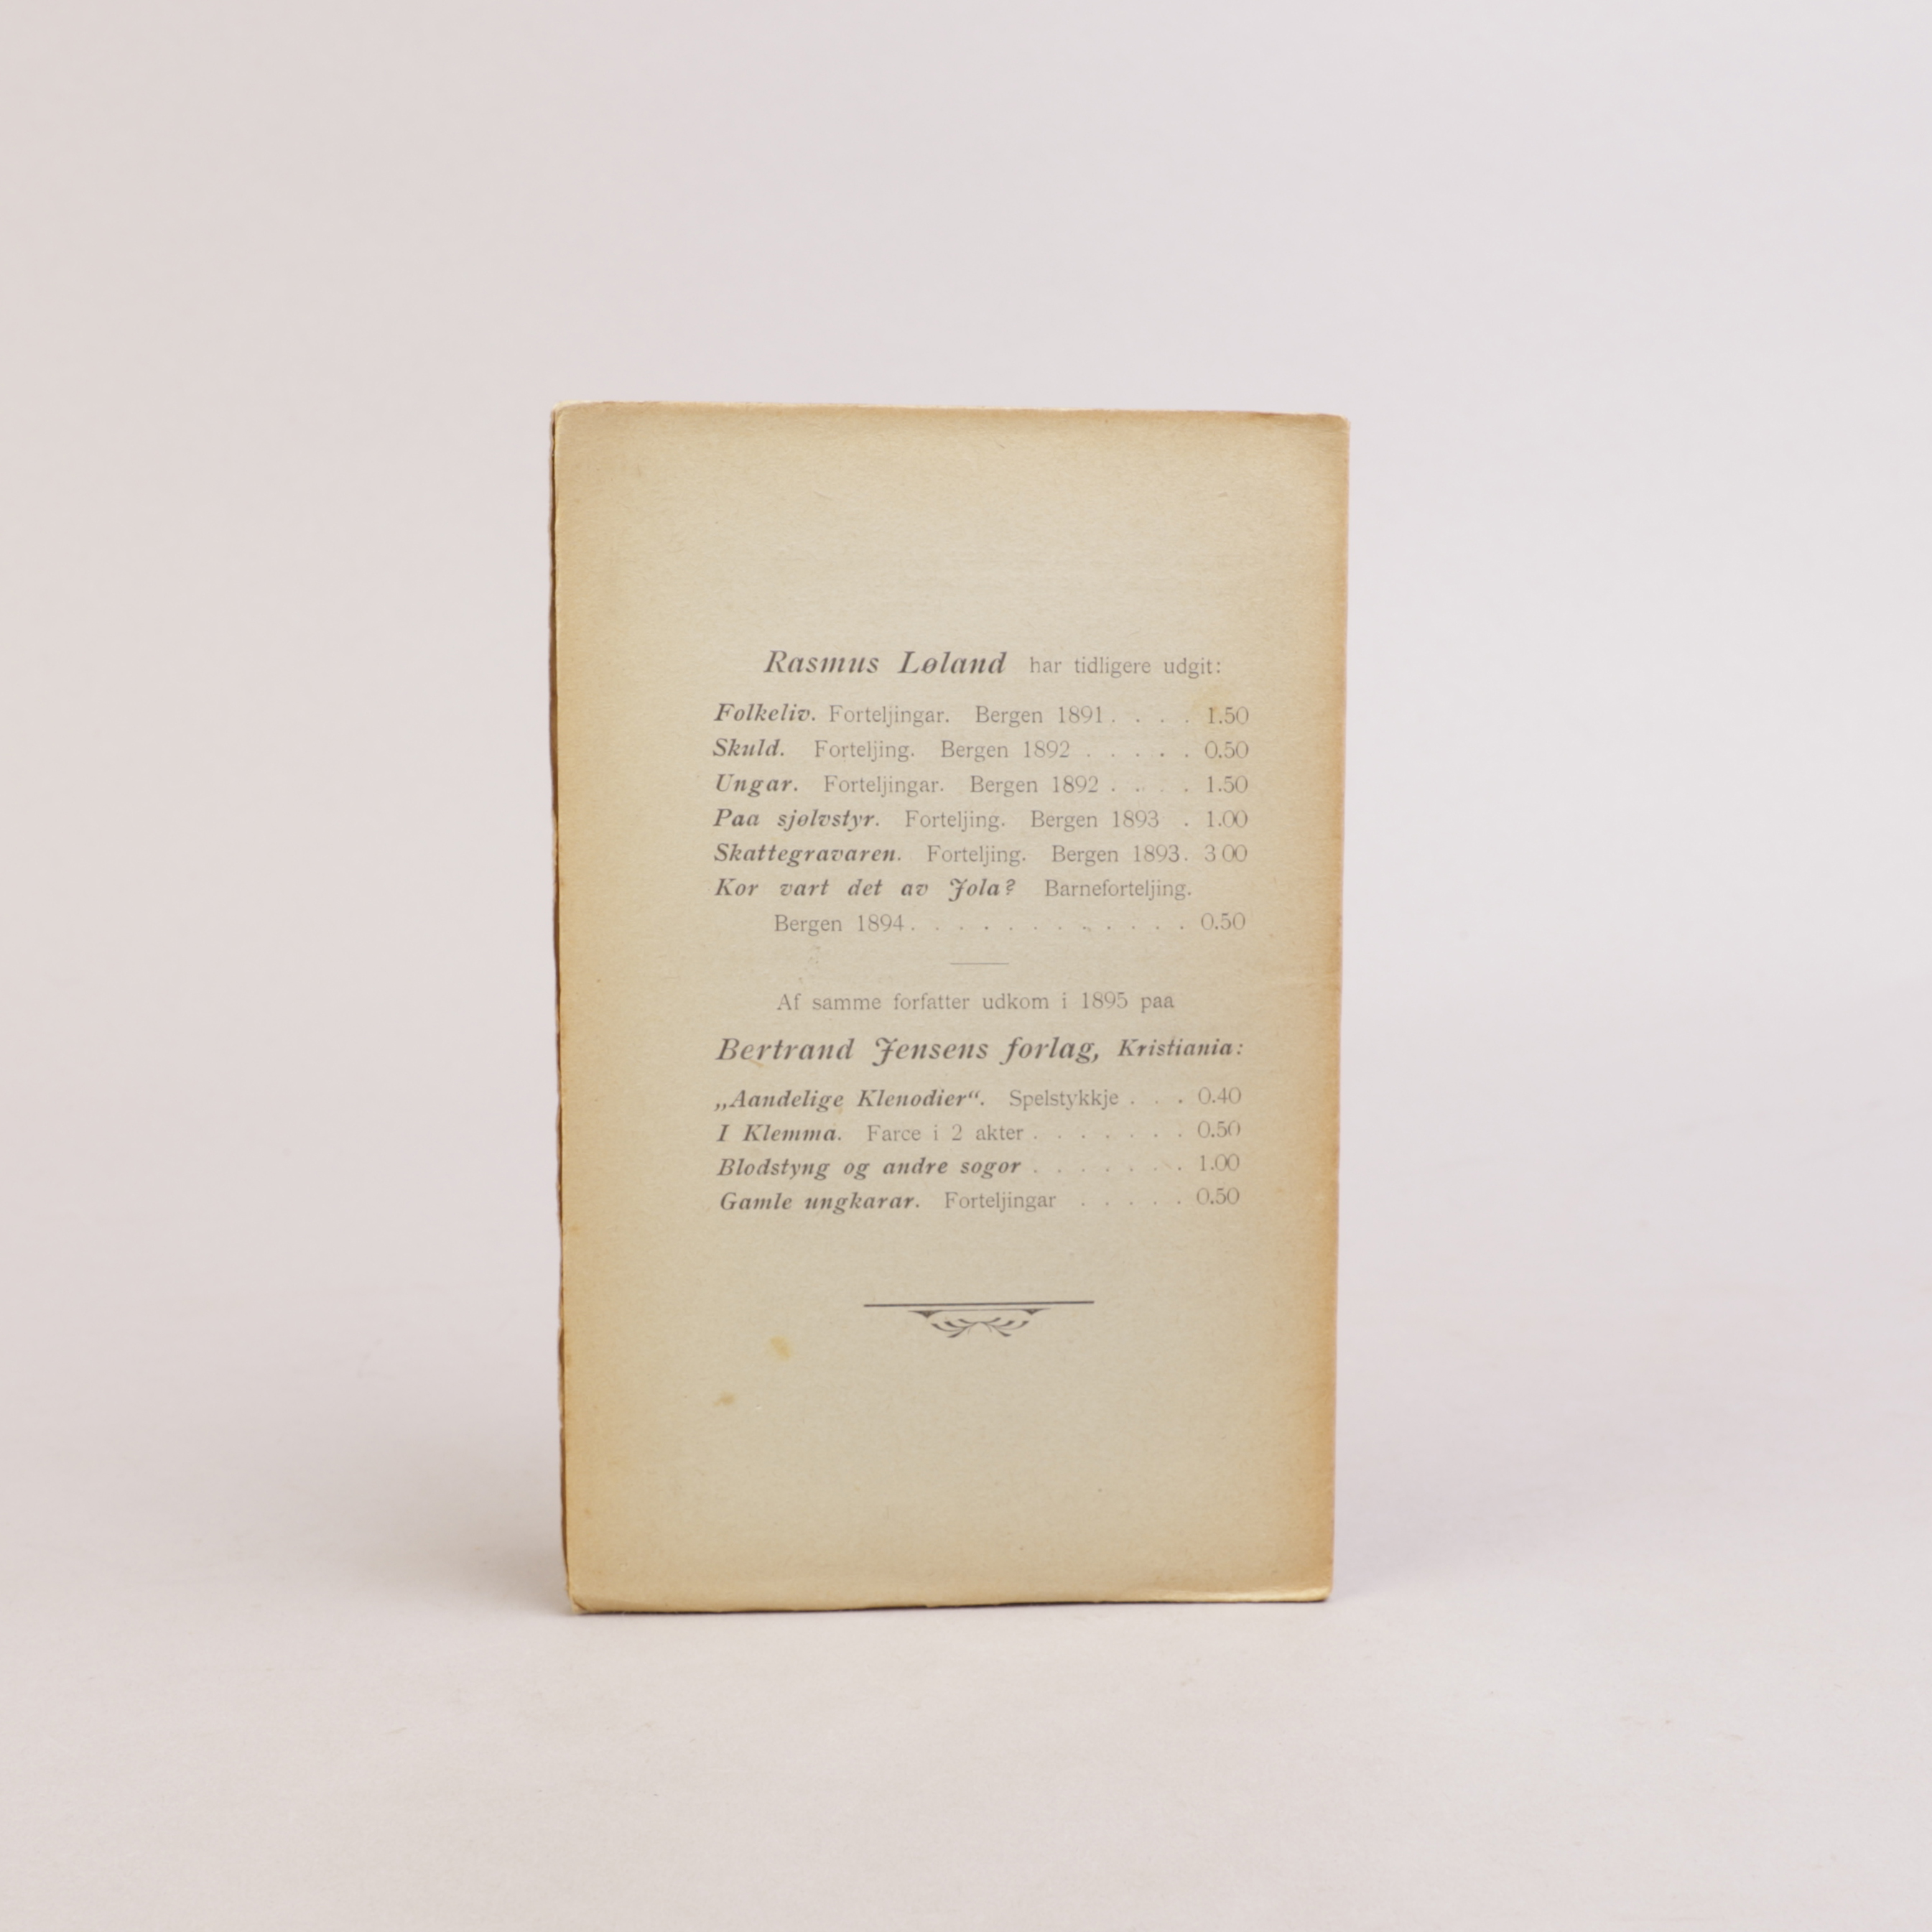 Rasmus Løland har tidligere udgit:
Folkeliv. Forteljingar. Bergen 1891. . . . 1.50
Skuld. Forteljing. Bergen 1892 . . . . . 0.50
Ungar. Forteljingar. Bergen 1892 . . . . 1.50
Paa sjølvstyr. Forteljing. Bergen 1893 . 1.00
Skattegravaren. Forteljing. Bergen 1893. 3 00
Kor vart det av Jola? Barneforteljing.
Bergen 1894. . . . . . . . . . . . 0.50
Af samme forfatter udkom i 1895 paa
Bertrand Jensens forlag, Kristiania:
„Aandelige Klenodier“. Spelstykkje . . . 0.40
I Klemma. Farce i 2 akter . . . . . . . 0.50
Blodstyng og andre sogor . . . . . . . 1.00
Gamle ungkarar. Forteljingar . . . . . 0.50